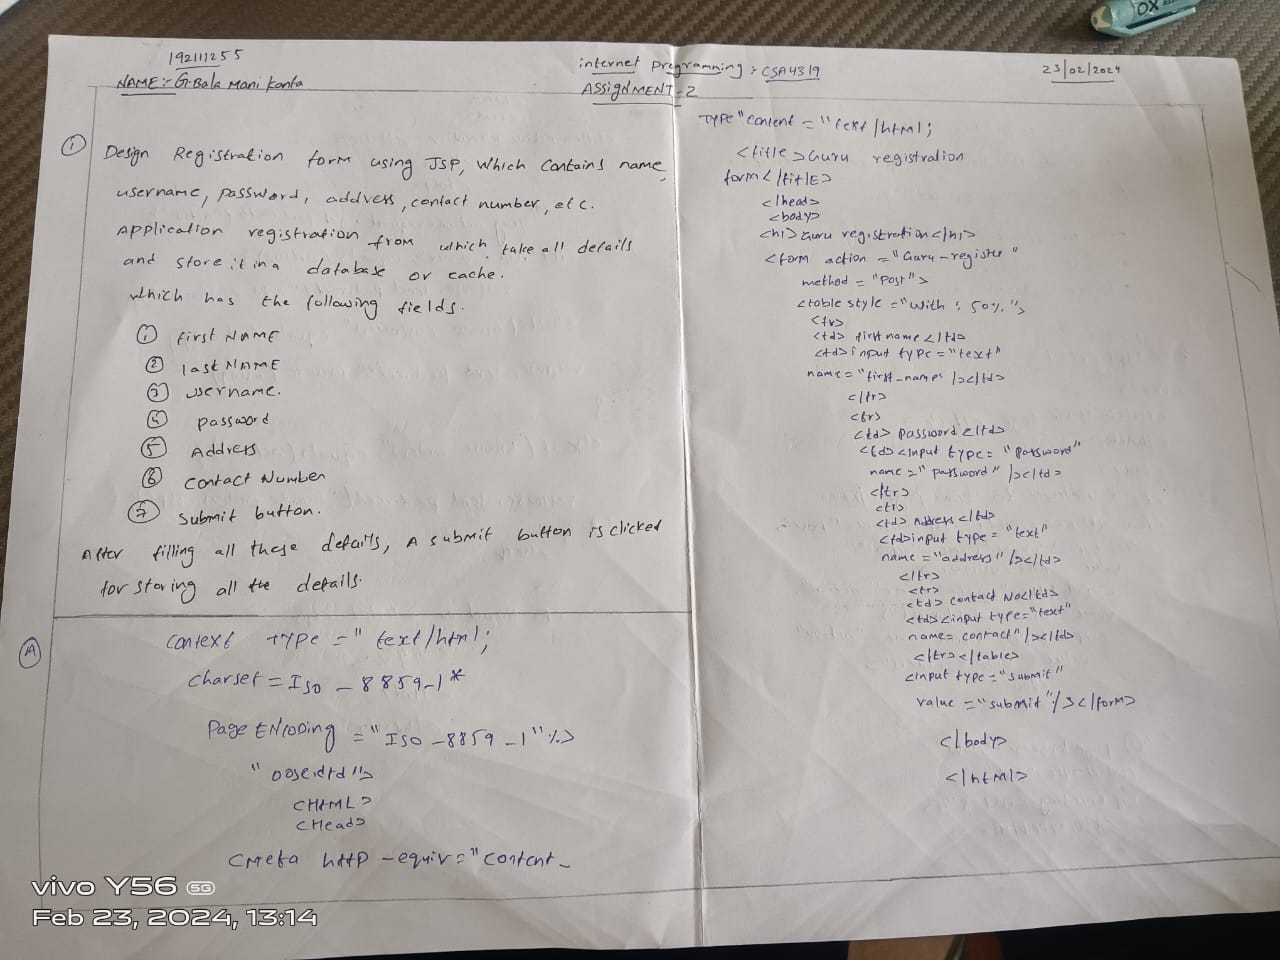 192111255
NAME:- G.Bala Mani Kanta
internet programming : CSA4319
ASSIGNMENT-2
23/02/2024
① Design Registration form using JSP, which contains name,
username, password, address, contact number, etc.
Application registration from which take all details
and store it in a database or cache.
which has the following fields.
① first NAME
② last NAME
③ username.
④ password
⑤ Address
⑥ contact Number
⑦ submit button.
After filling all these details, A submit button is clicked
for storing all the details.
Ⓐ context TYPE =" text/html;
charset = ISO - 8859-1*
Page ENCODING = "ISO -8859 -1"%>
<HTML>
<Head>
<Meta http -equiv="content-
TYPE "content = "text/html;
<title>Guru registration
form</titlE>
</head>
<body>
<h1>Guru registration</h1>
<form action ="Guru-register"
method = "Post">
<table style ="with : 50%.">
<tr>
<td> first name </td>
<td>input type="text"
name="first-name" /></td>
</tr>
<tr>
<td> Password </td>
<td><input type= "Password"
name =" password" /></td>
</tr>
<tr>
<td> Address </td>
<td>input type= "text"
name ="address" /></td>
</tr>
<tr>
<td> contact No</td>
<td><input type="text"
name= contact" /></td>
</tr></table>
<input type="submit"
value ="submit"/></form>
</body>
</html>
vivo Y56 5G
Feb 23, 2024, 13:14